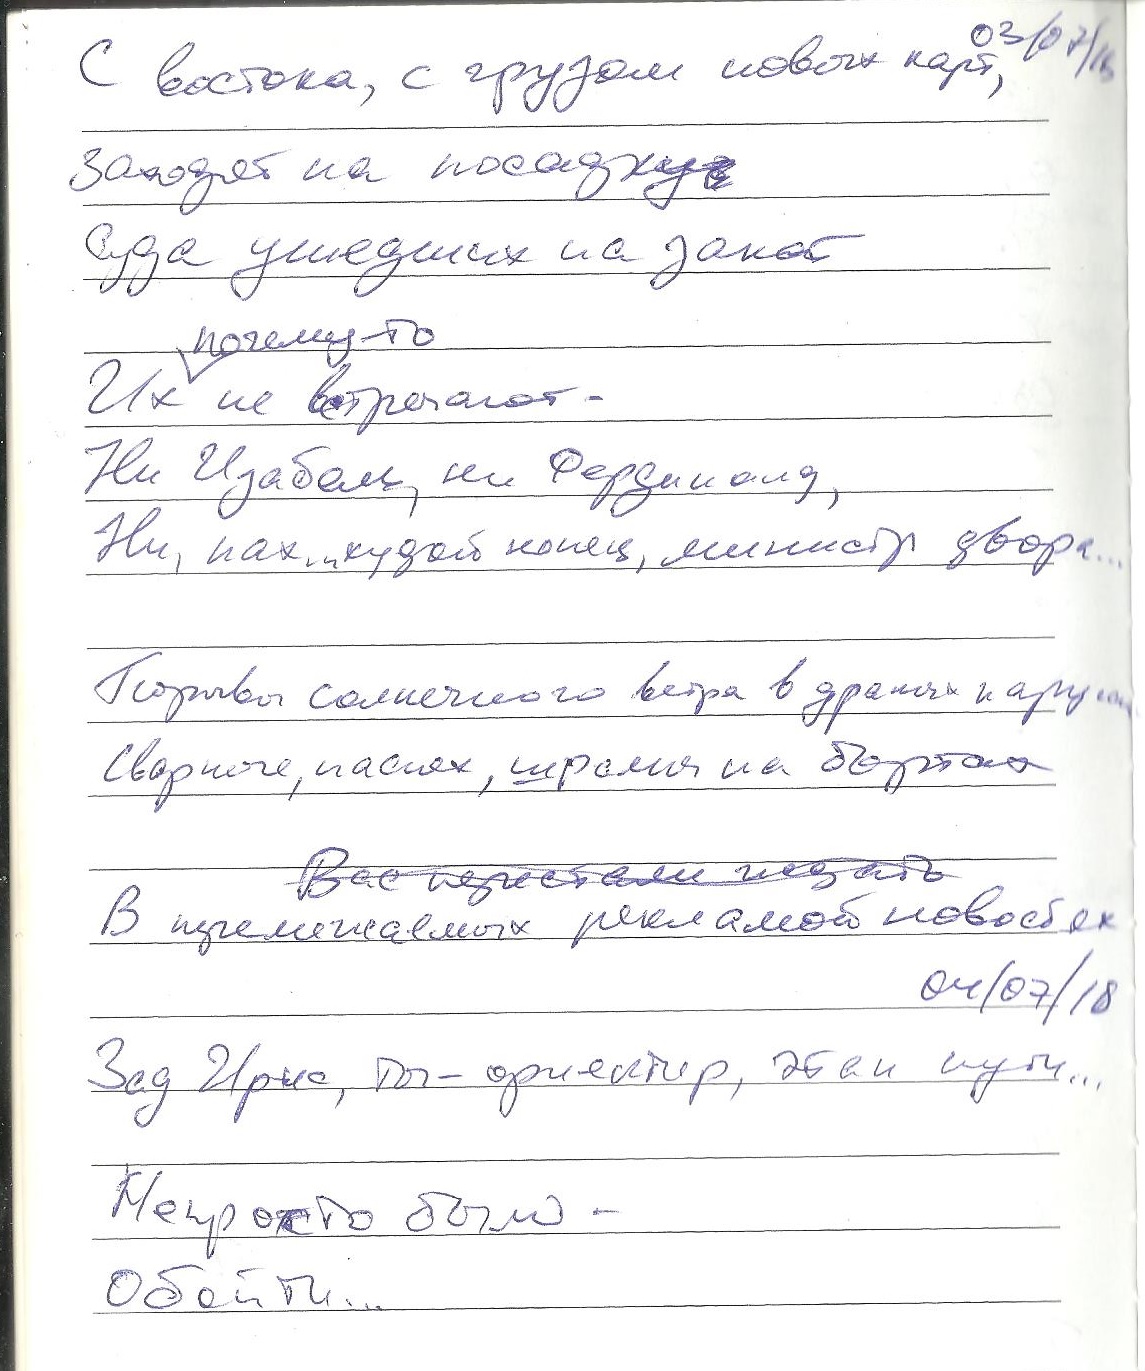 03/07/18
С востока, с грузом новых карт,
Заходят на посадку
Суда ушедших на закат
почему-то
Их не встречают -
Ни Изабель, ни Фердинанд,
Ни, пах... худой конец, министр двора...
Порывы солнечного ветра в драных парусах
Сварные, на снях, шрамы на бортах
Вас перестали ждать
В перемежаемых рекламой новостях
04/07/18
Зад Ирис, ты - ориентир, этап пути...
Непросто было -
Обойти...